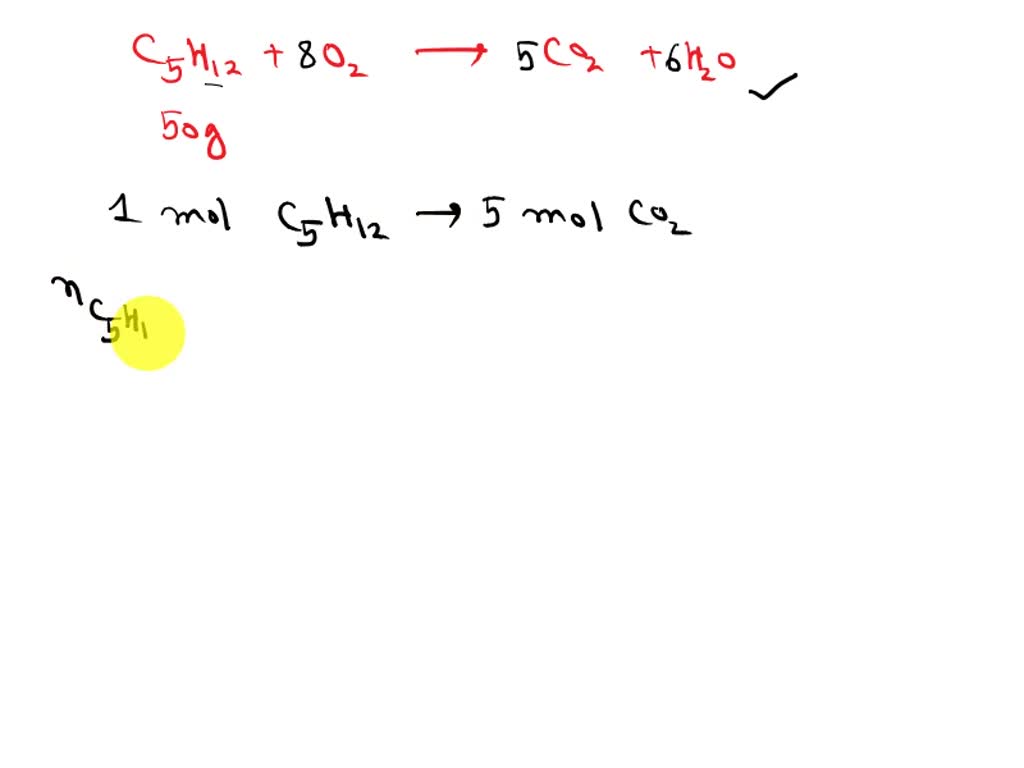 C₅H₁₂ + 8O₂ ⟶ 5CO₂ + 6H₂O ✓
50g
1 mol C₅H₁₂ → 5 mol CO₂
n C₅H₁